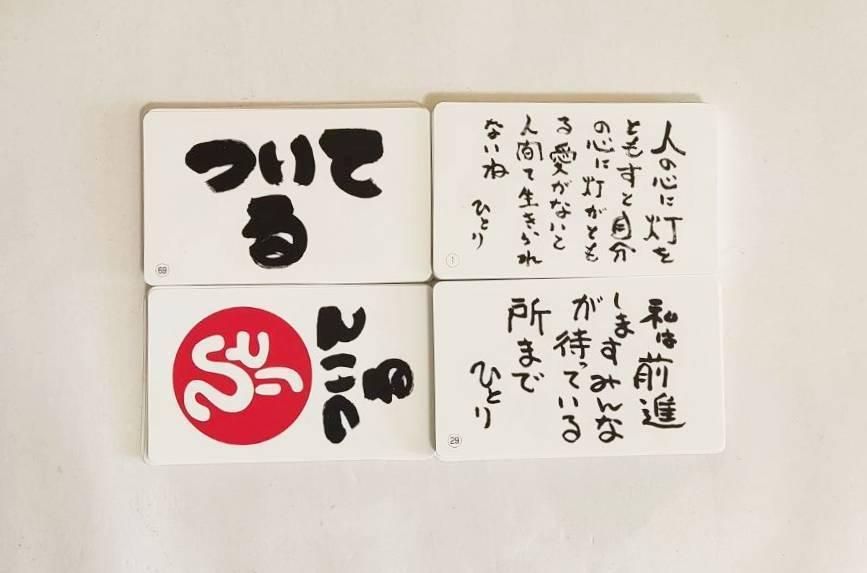 ついて
る
69
人の心に灯を
ともすと自分
の心に灯がとも
る愛がないと
人間て生きられ
ないね
ひとり
1
ついて
る
ひとり
私は前進
しますみんな
が待っている
所まで
ひとり
29